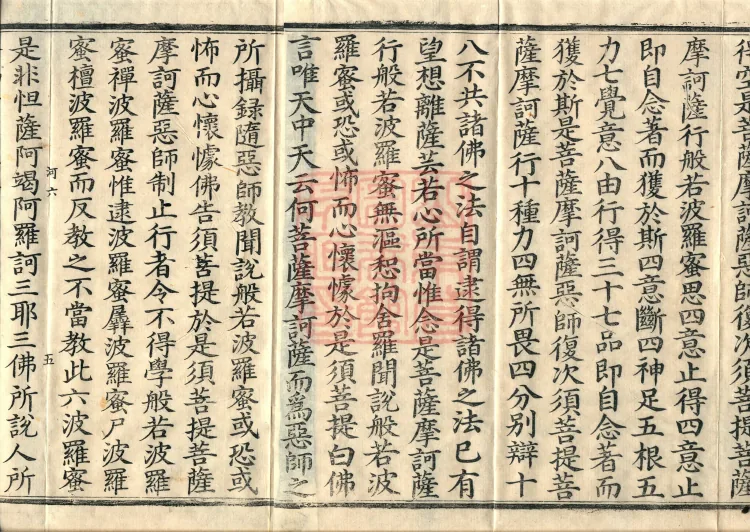 得空是菩薩摩訶薩惡師復次須菩提菩薩
摩訶薩行般若波羅蜜思四意止得四意止
即自念著而獲於斯四意斷四神足五根五
力七覺意八由行得三十七品即自念著而
獲於斯是菩薩摩訶薩惡師復次須菩提菩
薩摩訶薩行十種力四無所畏四分別辯十
八不共諸佛之法自謂逮得諸佛之法已有
望想離薩芸若心所當惟念是菩薩摩訶薩
行般若波羅蜜無漚惒拘舍羅聞說般若波
羅蜜或恐或怖而心懷懅於是須菩提白佛
言唯天中天云何菩薩摩訶薩而為惡師之
所攝錄隨惡師教聞說般若波羅蜜或恐或
怖而心懷懅佛告須菩提於是須菩提菩薩
摩訶薩惡師制止行者令不得學般若波羅
蜜禪波羅蜜惟逮波羅蜜羼波羅蜜尸波羅
蜜檀波羅蜜而反教之不當教此六波羅蜜
河六
五
是非怛薩阿竭阿羅訶三耶三佛所說人所